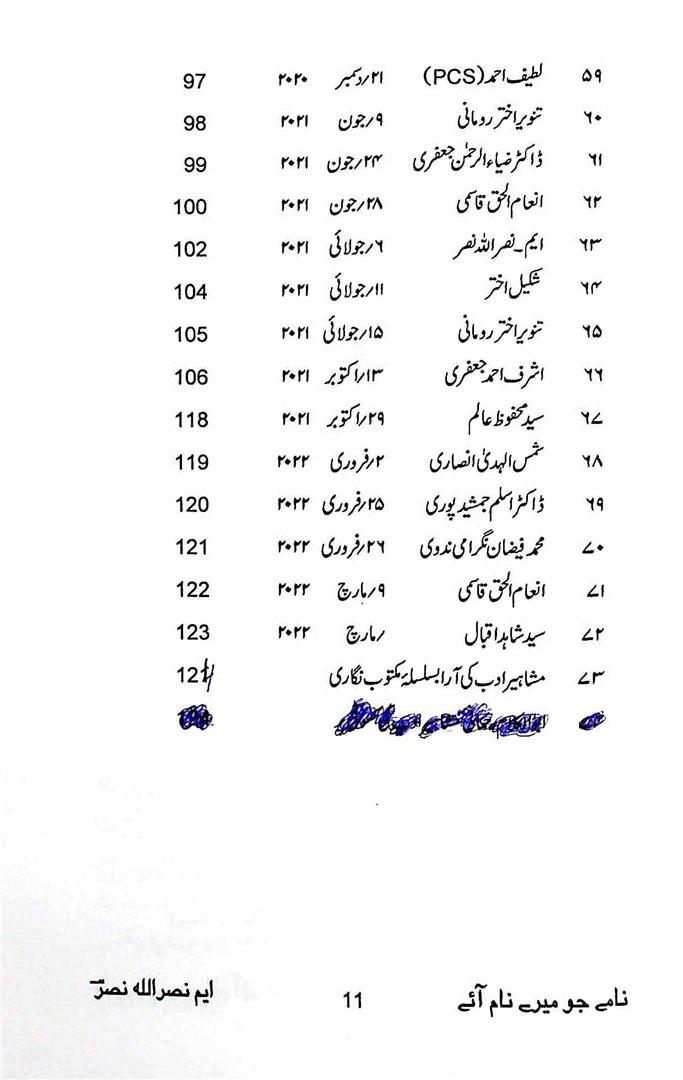 ۵۹ لطیف احمد (PCS) ۲۱؍دسمبر ۲۰۲۰ 97
۶۰ تنویر اختر رومانی ۹؍جون ۲۰۲۱ 98
۶۱ ڈاکٹر ضیاء الرحمٰن جعفری ۲۴؍جون ۲۰۲۱ 99
۶۲ انعام الحق قاسمی ۲۸؍جون ۲۰۲۱ 100
۶۳ ایم۔نصر اللہ نصر ۶؍جولائی ۲۰۲۱ 102
۶۴ شکیل اختر ۱۱؍جولائی ۲۰۲۱ 104
۶۵ تنویر اختر رومانی ۱۵؍جولائی ۲۰۲۱ 105
۶۶ اشرف احمد جعفری ۱۳؍اکتوبر ۲۰۲۱ 106
۶۷ سید محفوظ عالم ۲۹؍اکتوبر ۲۰۲۱ 118
۶۸ شمس الہدیٰ انصاری ۲؍فروری ۲۰۲۲ 119
۶۹ ڈاکٹر اسلم جمشید پوری ۲۵؍فروری ۲۰۲۲ 120
۷۰ محمد فیضان نگرامی ندوی ۲۶؍فروری ۲۰۲۲ 121
۷۱ انعام الحق قاسمی ۹؍مارچ ۲۰۲۲ 122
۷۲ سید شاہد اقبال ؍مارچ ۲۰۲۲ 123
۷۳ مشاہیر ادب کی آرا بسلسلۂ مکتوب نگاری 124
نامے جو میرے نام آئے 11 ایم نصر اللہ نصرؔ